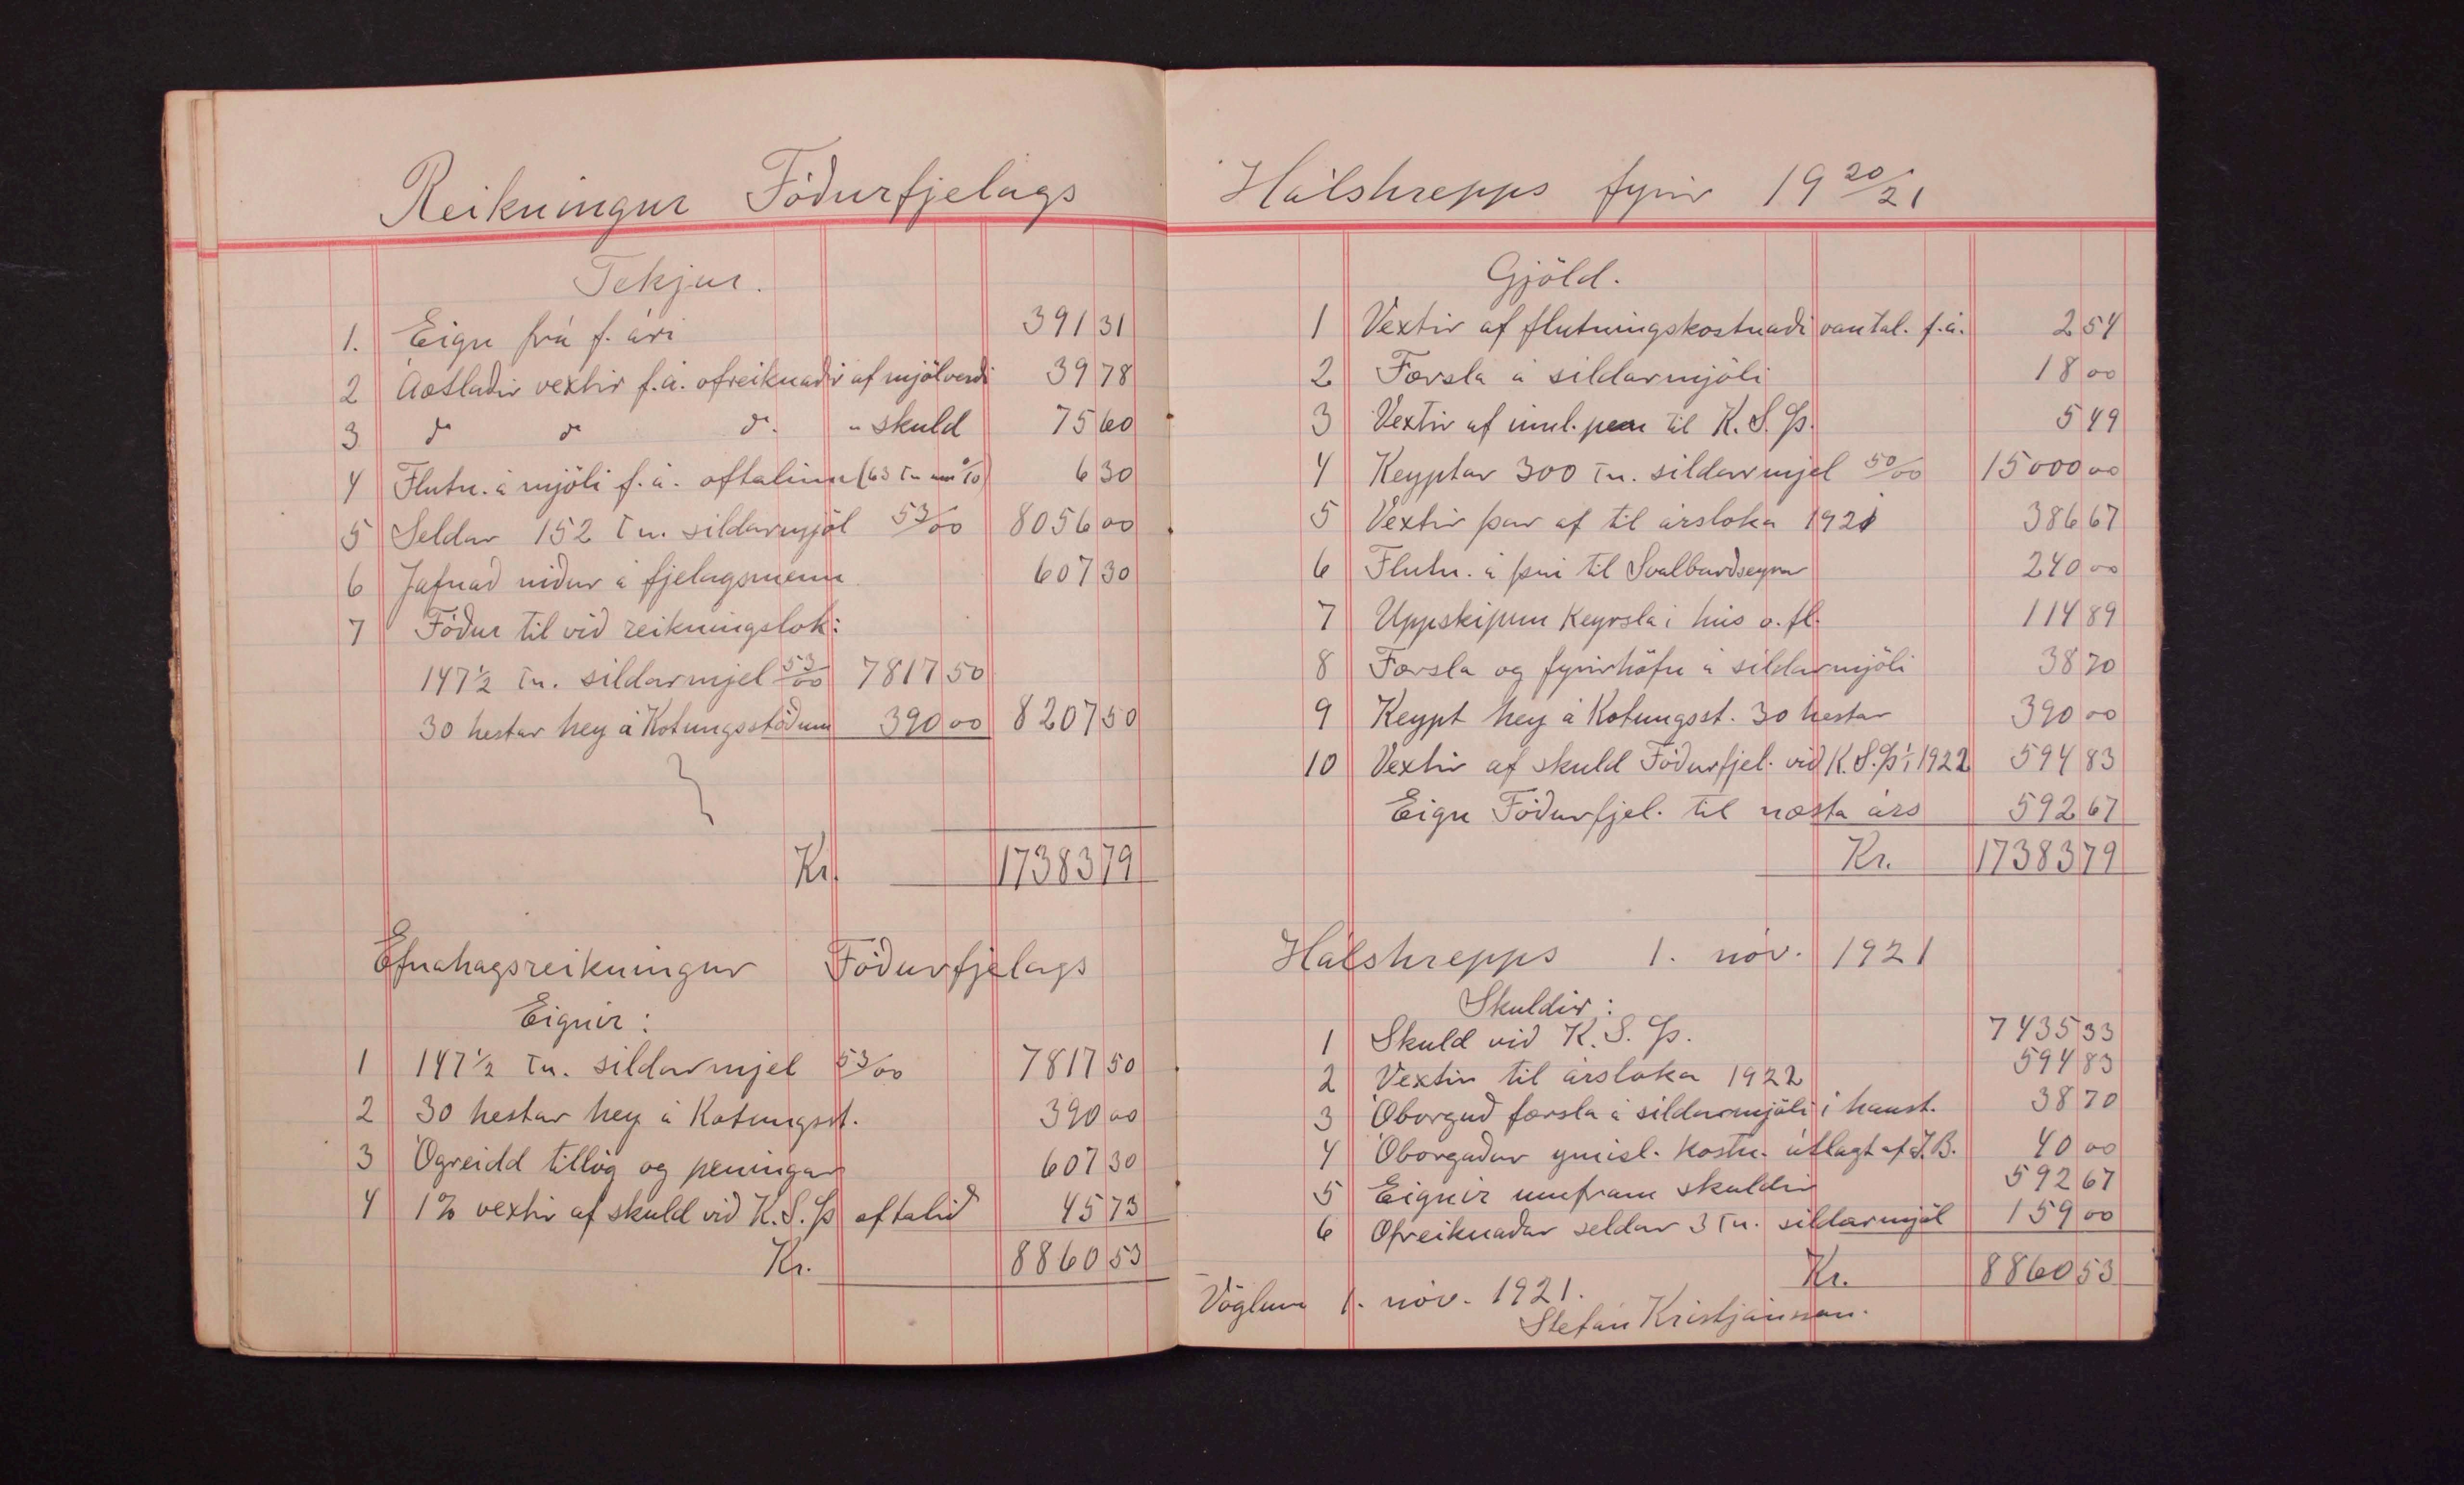 Reikningur Fóðurfjelags
Tekjur.
1. Eign frá f. ári 391 31
2 Áætlaðir vextir f.á. ofreiknaðir af mjölverði 39 78
3 do do do. " skuld 75 60
4 Flutn. á mjöli f.á. oftalinn (63 tn. 0/10) 6 30
5 Seldar 152 tn. síldarmjöl 53/00 8056 00
6 Jafnað niður á fjelagsmenn 607 30
7 Fóður til við reikningslok:
147 1/2 tn. síldarmjel 53/00 7817 50
30 hestar hey á Kotungsstöðum 390 00 8207 50
Kr. 17383 79
Efnahagsreikningur Fóðurfjelags
Eignir:
1 147 1/2 tn. síldarmjel 53/00 7817 50
2 30 hestar hey á Kotungsst. 390 00
3 Ógreidd tillög og peningar 607 30
4 1% vextir af skuld við K.S.Þ oftalið 45 73
Kr. 8860 53
Hálshrepps fyrir 19 20/21
Gjöld.
1 Vextir af flutningskostnaði vantal. f.á. 2 54
2 Færsla á síldarmjöli 18 00
3 Vextir af til K.S.Þ. 5 49
4 Keyptar 300 tn. síldarmjel 50/00 15000 00
5 Vextir þar af til ársloka 1921 386 67
6 Flutn. á því til Svalbarðseyrar 240 00
7 Uppskipun Keyrsla í hús o.fl. 114 89
8 Færsla og fyrirhöfn á síldarmjöli 38 70
9 Keypt hey á Kotungsst. 30 hestar 390 00
10 Vextir af skuld Fóðurfjel. við K.S.Þ 1/1 1922 594 83
Eign Fóðurfjel. til næsta árs 592 67
Kr. 17383 79
Hálshrepps 1. nóv. 1921
Skuldir:
1 Skuld við K.S.Þ. 7435 33
2 Vextir til ársloka 1922 594 83
3 Óborguð færsla á síldarmjöli í haust. 38 70
4 Óborgaður ýmisl. kostn. útlagt af J.B. 40 00
5 Eignir umfram skuldir 592 67
6 Ofreiknaðar seldar 3 tn. síldarmjöl 159 00
Kr. 8860 53
Vöglum 1. nóv. 1921.
Stefán Kristjánsson.